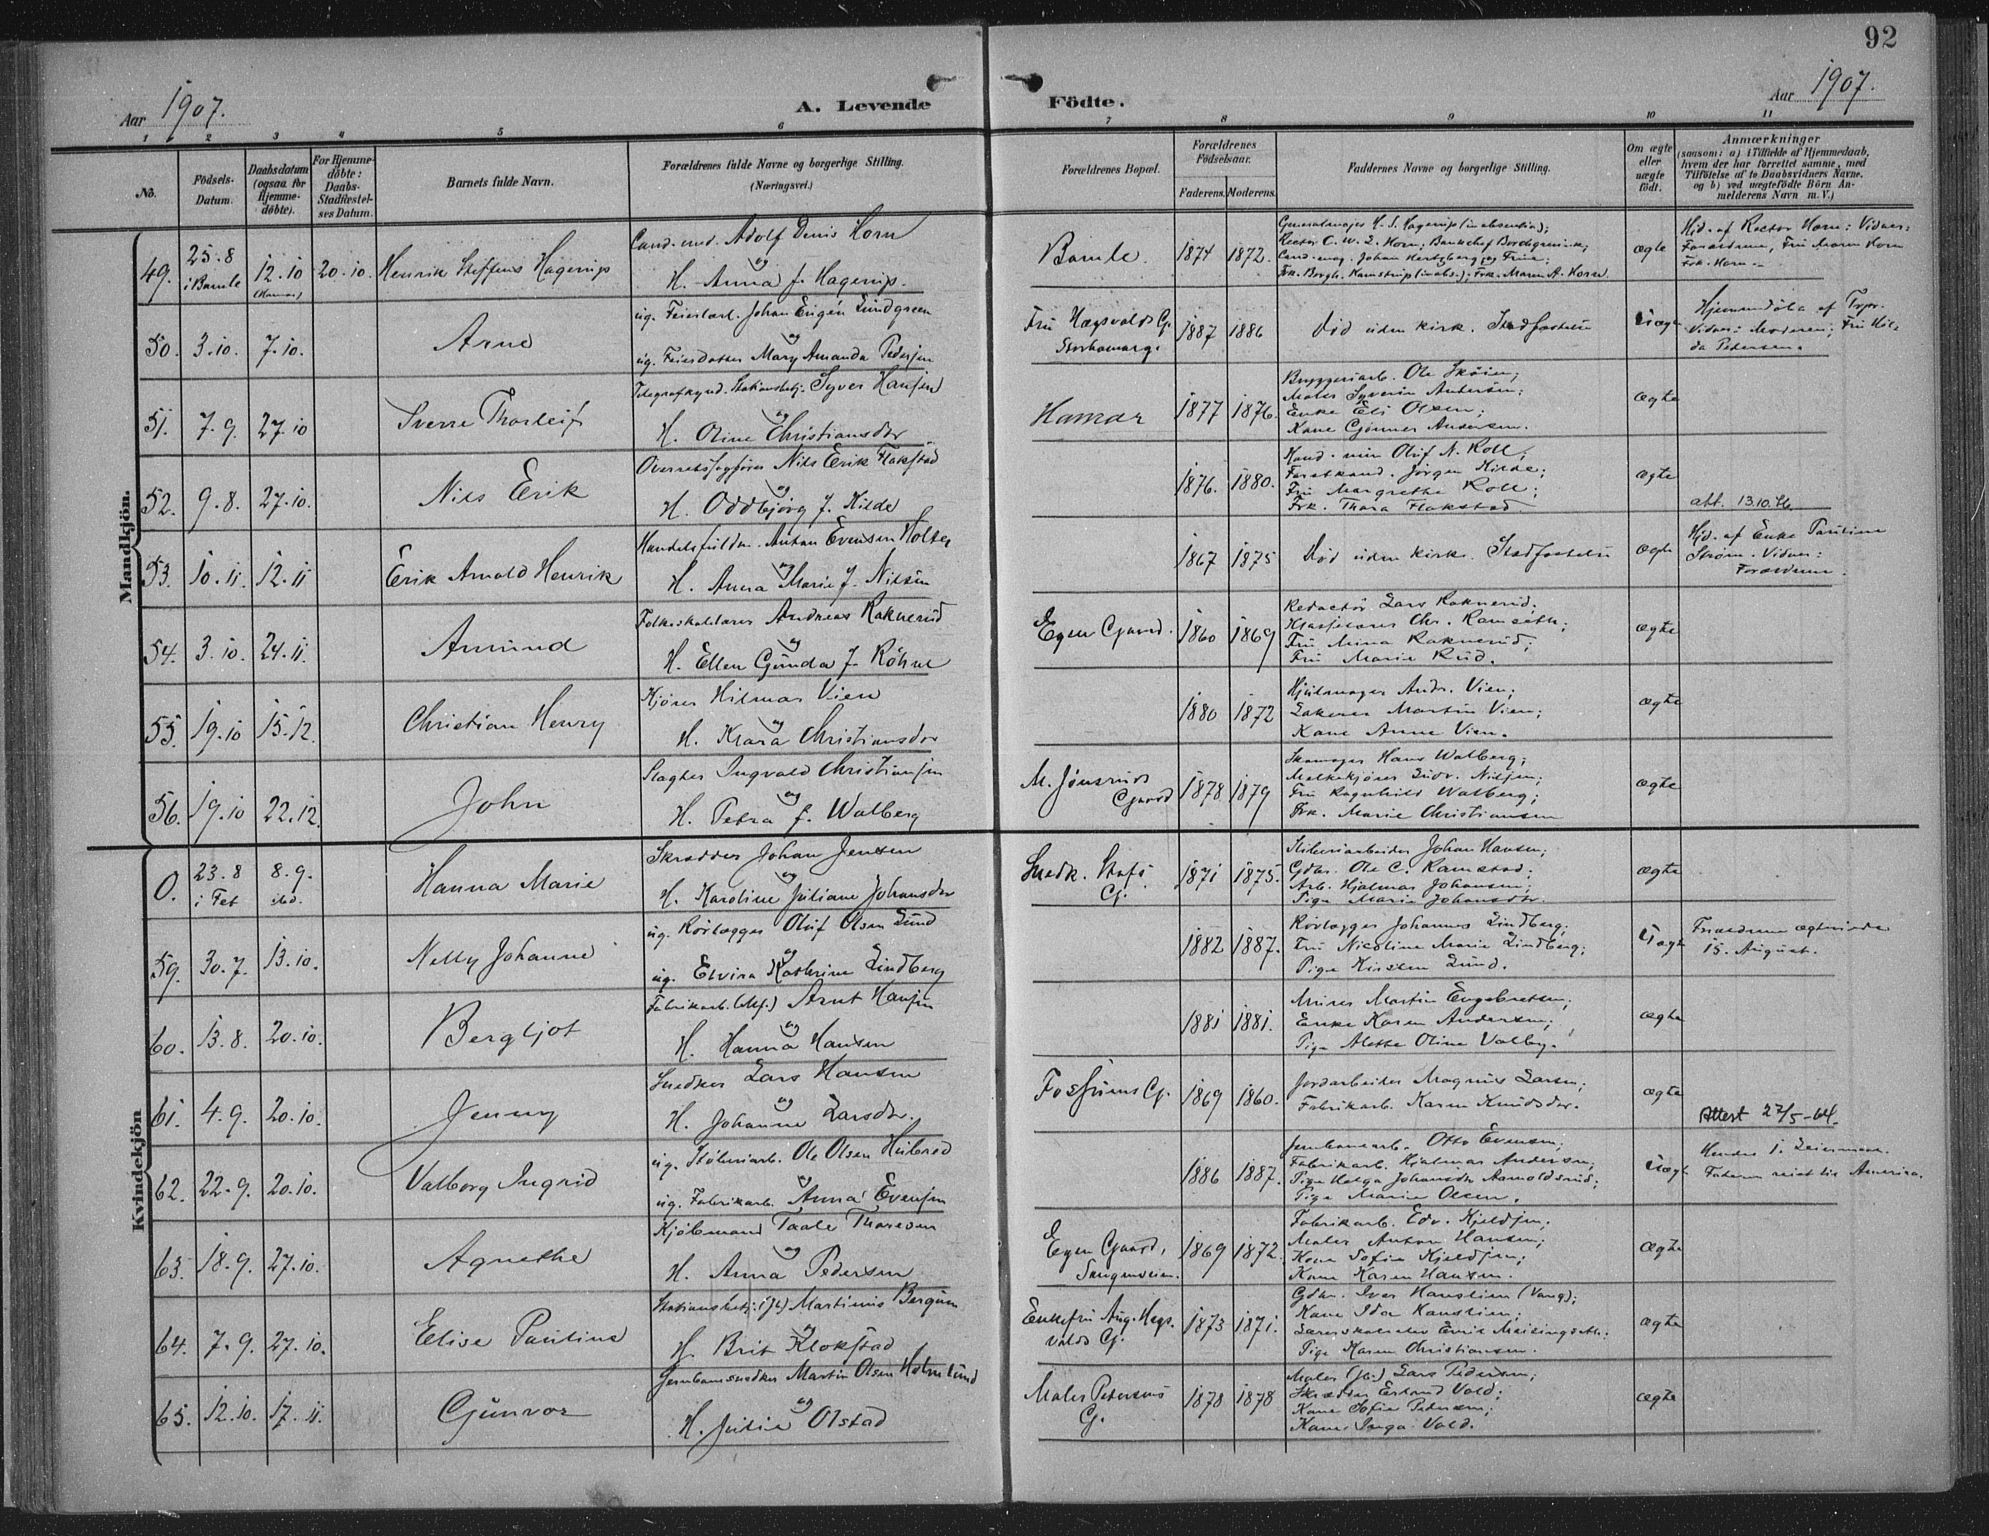 92
Aar 1907.
A. Levende Födte.
Aar 1907.
1 2 3 4 5 6 7 8 9 10 11
No.
Födsels-Datum.
Daabsdatum (ogsaa for Hjemme-döbte).
For Hjemme-döbte: Daabs-Stadfæstel-ses Datum.
Barnets fulde Navn.
Forældrenes fulde Navne og borgerlige Stilling. (Næringsvei.)
Forældrenes Bopæl.
Forældrenes Födselsaar.
Faderens. Moderens.
Faddernes Navne og borgerlige Stilling.
Om ægte eller uægte födt.
Anmærkninger
(saasom: a) i Tilfælde af Hjemmedaab, hvem der har forrettet samme, med Tilföielse af to Daabsvidners Navne, og b) ved uægtefödte Börn An-melderens Navn m. V.)
Mandkjön.
49. 25.8 i Bamle 12.10 (Hamar) 20.10. Henrik Steffens Hagerup
Cand. med. Adolf Denis Horn
og
H. Anna f. Hagerup.
Bamle 1874 1872.
Generalmajor H. S. Hagerup (in absentia);
Rector C. W. L. Horn; Bankchef Borchgrevink;
Cand. mag. Johan Hertzberg og Frue;
Frk. Borgh. Kamstrup (in abs.); Frk. Maren A. Horn.
ægte
Hjd. af Rector Horn: Vidner:
Forældrene, Fru Maren Horn
Frk. Horn.
50. 3.10. 7.10. Arne
ug. Feierlærl. Johan Eugén Lundgreen
og
ug. Feierdatter Mary Amanda Pedersen
Fru Hægsvolds G.
Storhamarg.
1887 1886
död uden kirk. Stadfæstelse
Uægte
Hjemmedöbt af
Vidner: Moderen; Fru Hil-
da Pedersen.
51. 7.9. 27.10 Sverre Thorleif
Telegrafkynd. Stationsbetj. Syver Hansen
og
H. Oline Christiansdtr
Hamar 1877 1876.
Bryggeriarb. Ole Skøien;
Maler Syverin Andersen;
Enke Eli Olsen;
Kone Gjönner Andersen.
ægte
52. 9.8. 27.10. Nils Erik
Overretssagförer Nils Erik Flakstad
og
H. Oddbjörg f. Kilde
1876. 1880.
Kand. min Oluf N. Roll;
Forstkand. Jörgen Kilde;
Fru Margrethe Roll;
Frk. Thora Flakstad
ægte
att. 13.10.
53. 10.11. 12.11 Erik Arnold Henrik
Handelsfuldm. Anton Evensen Holter
og
H. Anna Marie f. Nilsen
1867 1875
Död uden kirk. Stadfæstelse
ægte
Hjd. af Enke Pauline
Strøm. Vidner:
Forældrene.
54. 3.10. 24.11. Amund
Folkeskolelærer Andreas Raknerud
og
H. Ellen Gunda f. Röhne
Egen Gaard. 1860 1869
Redactör Lars Raknerud;
Klasselærer Chr. Ramseth;
Fru Mina Raknerud;
Fru Marie Rud.
ægte
55. 19.10 15.12. Christian Henry
Kjörer Hilmar Vien
og
H. Klara Christiansdtr
1880 1872
Hjulmager Andr. Vien;
Lakerer Martin Vien;
Kone Anne Vien.
ægte
56. 19.10 22.12. John
Slagter Ingvald Christiansen
og
H. Petra f. Walberg
M. Jönsruds Gaard 1878 1879
Skomager Hans Walberg;
Melkekjörer Ludv. Nilsen;
Fru Ragnhild Walberg;
Frk. Marie Christiansen
ægte
Kvindekjön
0. 23.8 i Fet 8.9. ibd. Hanna Marie
Skrædder Johan Jensen
og
H. Karoline Juliane Johansdtr
Snedk. Stafs G. 1871 1875.
Stöberiarbeider Johan Hansen;
Gdbr. Ole C. Ramstad;
Arb. Hjalmar Johansen;
Pige Marie Johansdtr.
ægte
59. 30.7. 13.10. Nelly Johanne
ug. Rörlægger Oluf Olsen Lund
og
ug. Elvira Kathrine Lindberg
1882 1887.
Rörlægger Johannes Lindberg;
Fru Nicoline Marie Lindberg;
Pige Kirsten Lund.
Uægte
Forældrene ægteviede
15. August.
60. 13.8. 20.10. Bergljot
Fabrikarb. (Mf.) Arnt Hansen
og
H. Hanna Hansen
1881 1881.
Murer Martin Engebretsen;
Enke Karen Andersen;
Pige Alette Oline Valby.
ægte
61. 4.9. 20.10. Jenny
Snedker Lars Hansen
og
H. Johanne Larsdtr.
Fossums G. 1869 1860.
Jordarbeider Magnus Larsen;
Fabrikarb. Karen Knudsdtr.
ægte
Attest 27/5-64.
62. 22.9. 20.10. Valborg Ingrid
ug. Stöberiarb. Ole Olsen Hulbred
og
ug. Fabrikarb. Anna Evensen
1886 1887.
Jernbanearb. Otto Evensen;
Fabrikarb. Hjalmar Andersen;
Pige Helga Johansdtr Arnoldsrud;
Pige Marie Olsen.
Uægte
Hendes 1. Leiermaal.
Faderen reist til Amerika.
63. 18.9. 27.10. Agnethe
Kjöbmand Taale Thoresen
og
H. Anna Pedersen
Egen Gaard, Tangenveien. 1869 1872.
Fabrikarb. Edv. Kjeldsen;
Maler Anton Hansen;
Kone Sofie Kjeldsen;
Kone Karen Hansen.
ægte
64. 7.9. 27.10. Elise Pauline
Stationsbetj. (Jb) Martinus Bergum
og
H. Brit Klokstad
Enkefru Aug. Hægs-
volds G.
1873 1871.
Gdbr. Iver Hanslien (Vang);
Kone Ida Hanslien;
Pige Karen Christiansen.
ægte
65. 12.10. 17.11. Gunvor
Jernbanesnedker Martin Olsen Holmlund
og
H. Julie Olstad
Maler Pedersens G. 1878 1878
Maler (Jb.) Lars Pedersen;
Skrædder Erland Vold;
Kone Sofie Pedersen;
Kone Inga Vold.
ægte